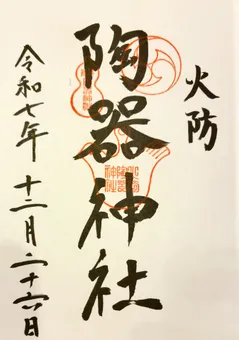 火防
陶器神社
令和七年 十二月二十六日